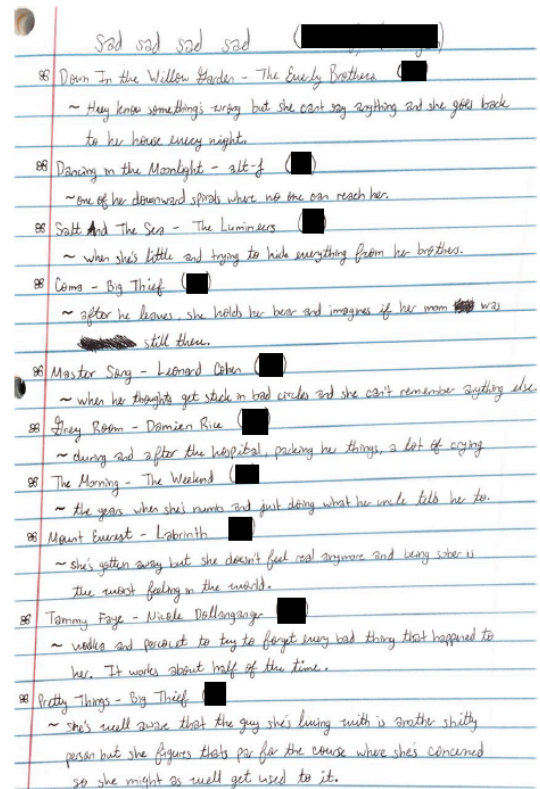 Sad sad sad sad (
Down In the Willow Garden - The Everly Brothers ( )
~ they know something's wrong but she can't say anything and she goes back
to her house every night.
Dancing in the Moonlight - alt-J ( )
~ one of her downward spirals where no one can reach her.
Salt And The Sea - The Lumineers ( )
~ when she's little and trying to hide everything from her brothers.
Coma - Big Thief ( )
~ after he leaves, she holds her bear and imagines if her mom was
still there.
Master Song - Leonard Cohen ( )
~ when her thoughts get stuck in bad circles and she can't remember anything else.
Grey Room - Damien Rice ( )
~ during and after the hospital, packing her things, a lot of crying
The Morning - The Weeknd ( )
~ the years when she's numb and just doing what her uncle tells her to.
Mount Everest - Labrinth
~ she's gotten away but she doesn't feel real anymore and being sober is
the worst feeling in the world.
Tammy Faye - Nicole Dollanganger ( )
~ vodka and percocet to try to forget every bad thing that happened to
her. It works about half of the time.
Pretty Things - Big Thief ( )
~ she's well aware that the guy she's living with is another shitty
person but she figures thats par for the course where she's concerned
so she might as well get used to it.